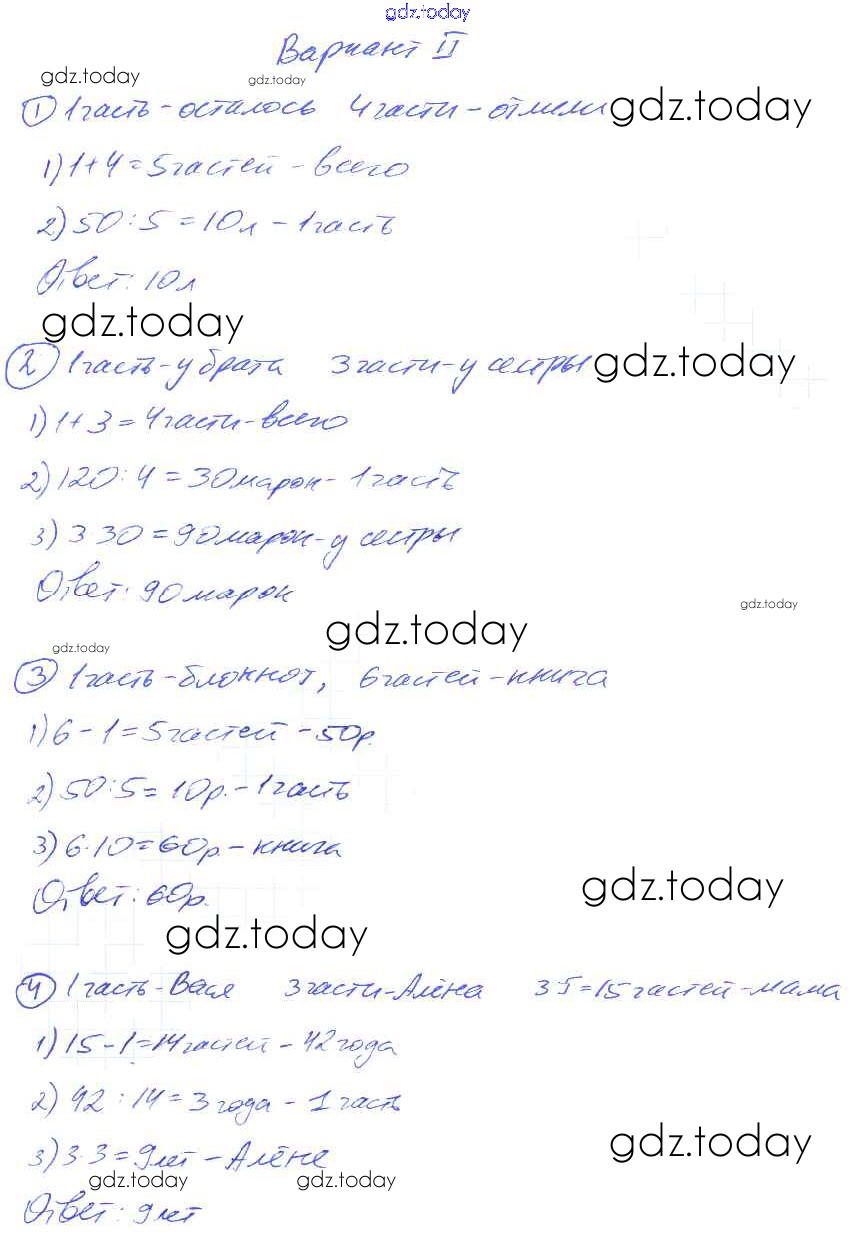 gdz.today
Вариант II
gdz.today gdz.today
1 1часть-осталось 4части-отлили gdz.today
1) 1+4=5частей-всего
2) 50:5=10л-1часть
Ответ: 10л
gdz.today
2 1часть-у брата 3части-у сестры gdz.today
1) 1+3=4части-всего
2) 120:4=30марок-1часть
3) 3·30=90марок-у сестры
Ответ: 90марок
gdz.today
gdz.today
gdz.today
3 1часть-блокнот, 6частей-книга
1) 6-1=5частей-50р.
2) 50:5=10р.-1часть
3) 6·10=60р-книга
Ответ: 60р.
gdz.today
gdz.today
4 1часть-Вася 3части-Алёна 3·5=15частей-мама
1) 15-1=14частей-42года
2) 42:14=3года-1часть
3) 3·3=9лет-Алёне
gdz.today
gdz.today gdz.today
Ответ: 9лет